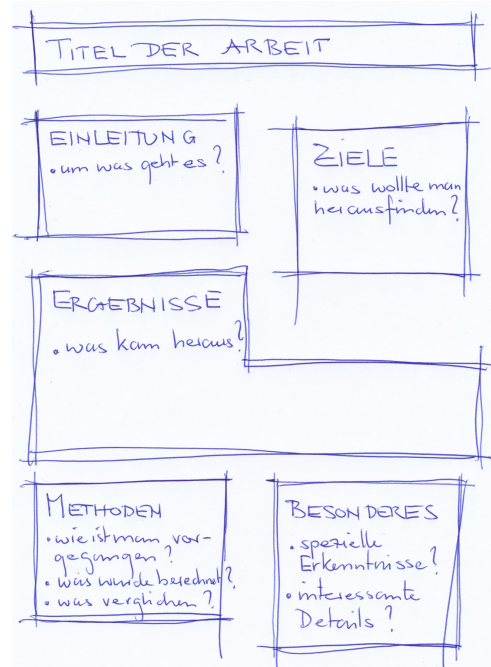 TITEL DER ARBEIT
EINLEITUNG
• um was geht es?
ZIELE
• was wollte man
herausfinden?
ERGEBNISSE
• was kam heraus?
METHODEN
• wie ist man vor-
gegangen?
• was wurde berechnet?
• was verglichen?
BESONDERES
• spezielle
Erkenntnisse?
• interessante
Details?